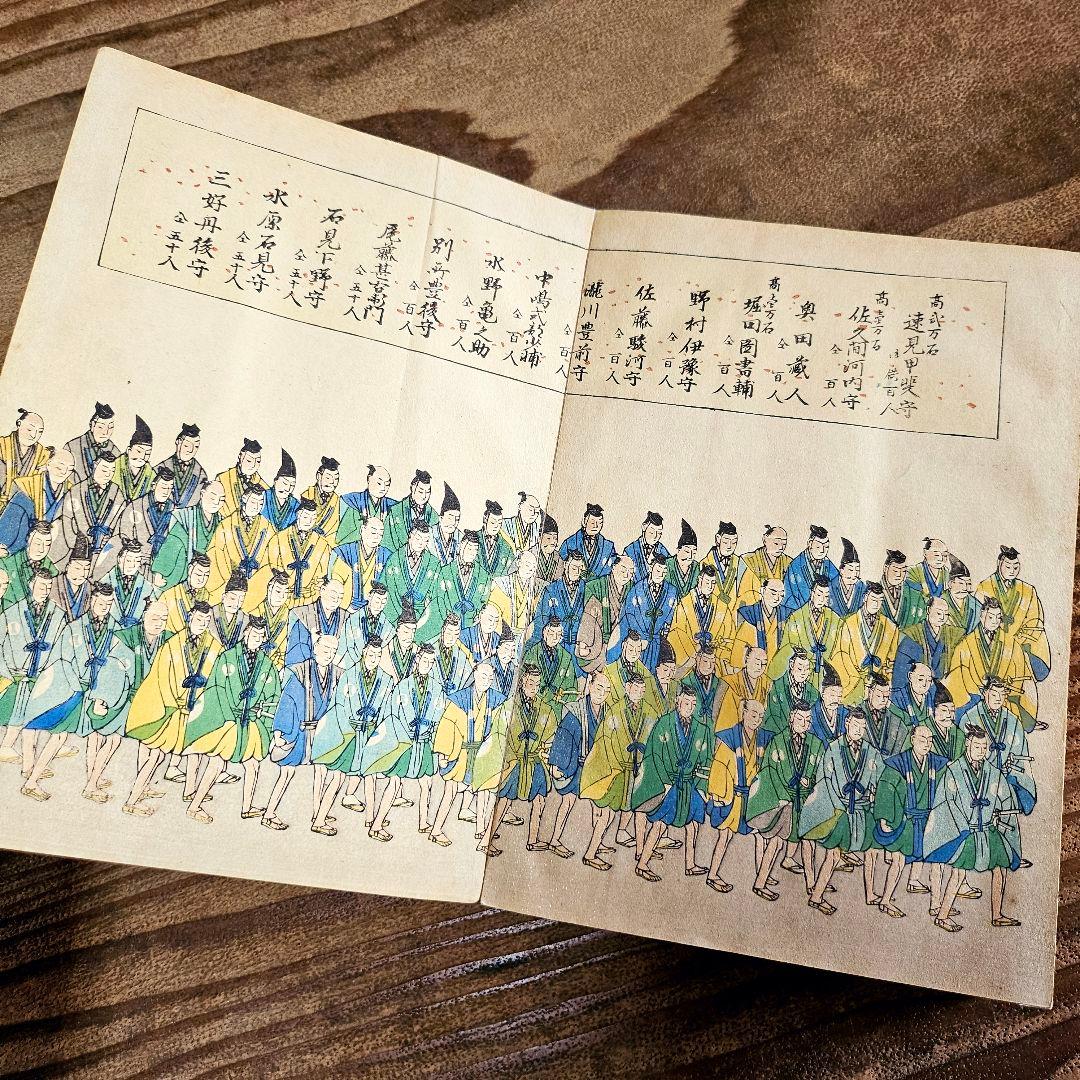 高弐万石
速見甲斐守
百人
高壱万石
佐久間河内守
仝 百人
奥田蔵人
仝 百人
高壱万石
堀田図書輔
仝 百人
野村伊豫守
仝 百人
佐藤駿河守
仝 百人
瀧川豊前守
仝 百人
中嶋式部少輔
仝 百人
水野亀之助
仝 百人
別所豊後守
仝 百人
尾藤甚右衛門
仝 五十人
石見下野守
仝 五十人
水原石見守
仝 五十人
三好丹後守
仝 五十人